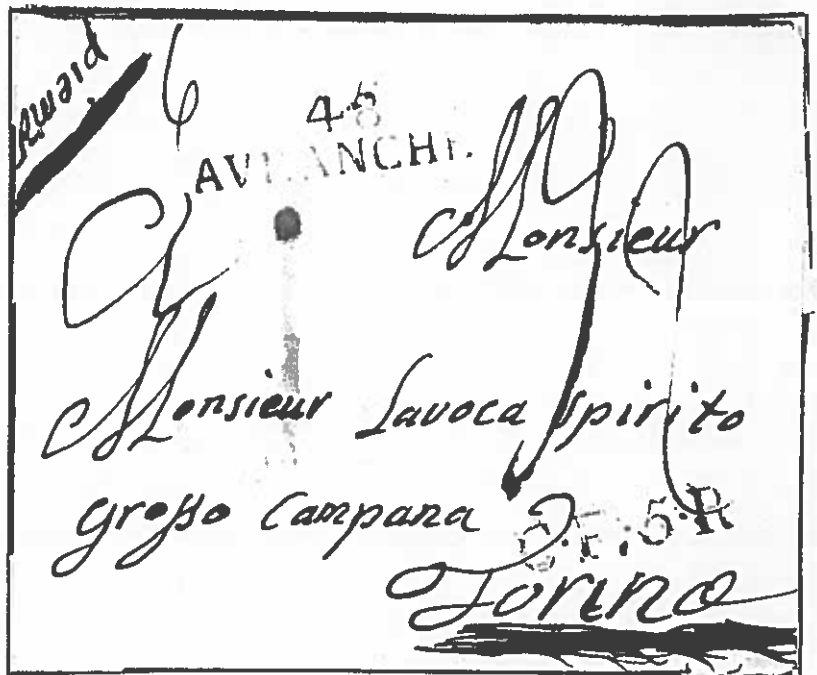 piemont
48
AVRANCHE.
A
Monsieur
Monsieur Lavoca Spirito
Grosso Campana
C.F.5.R
Torino